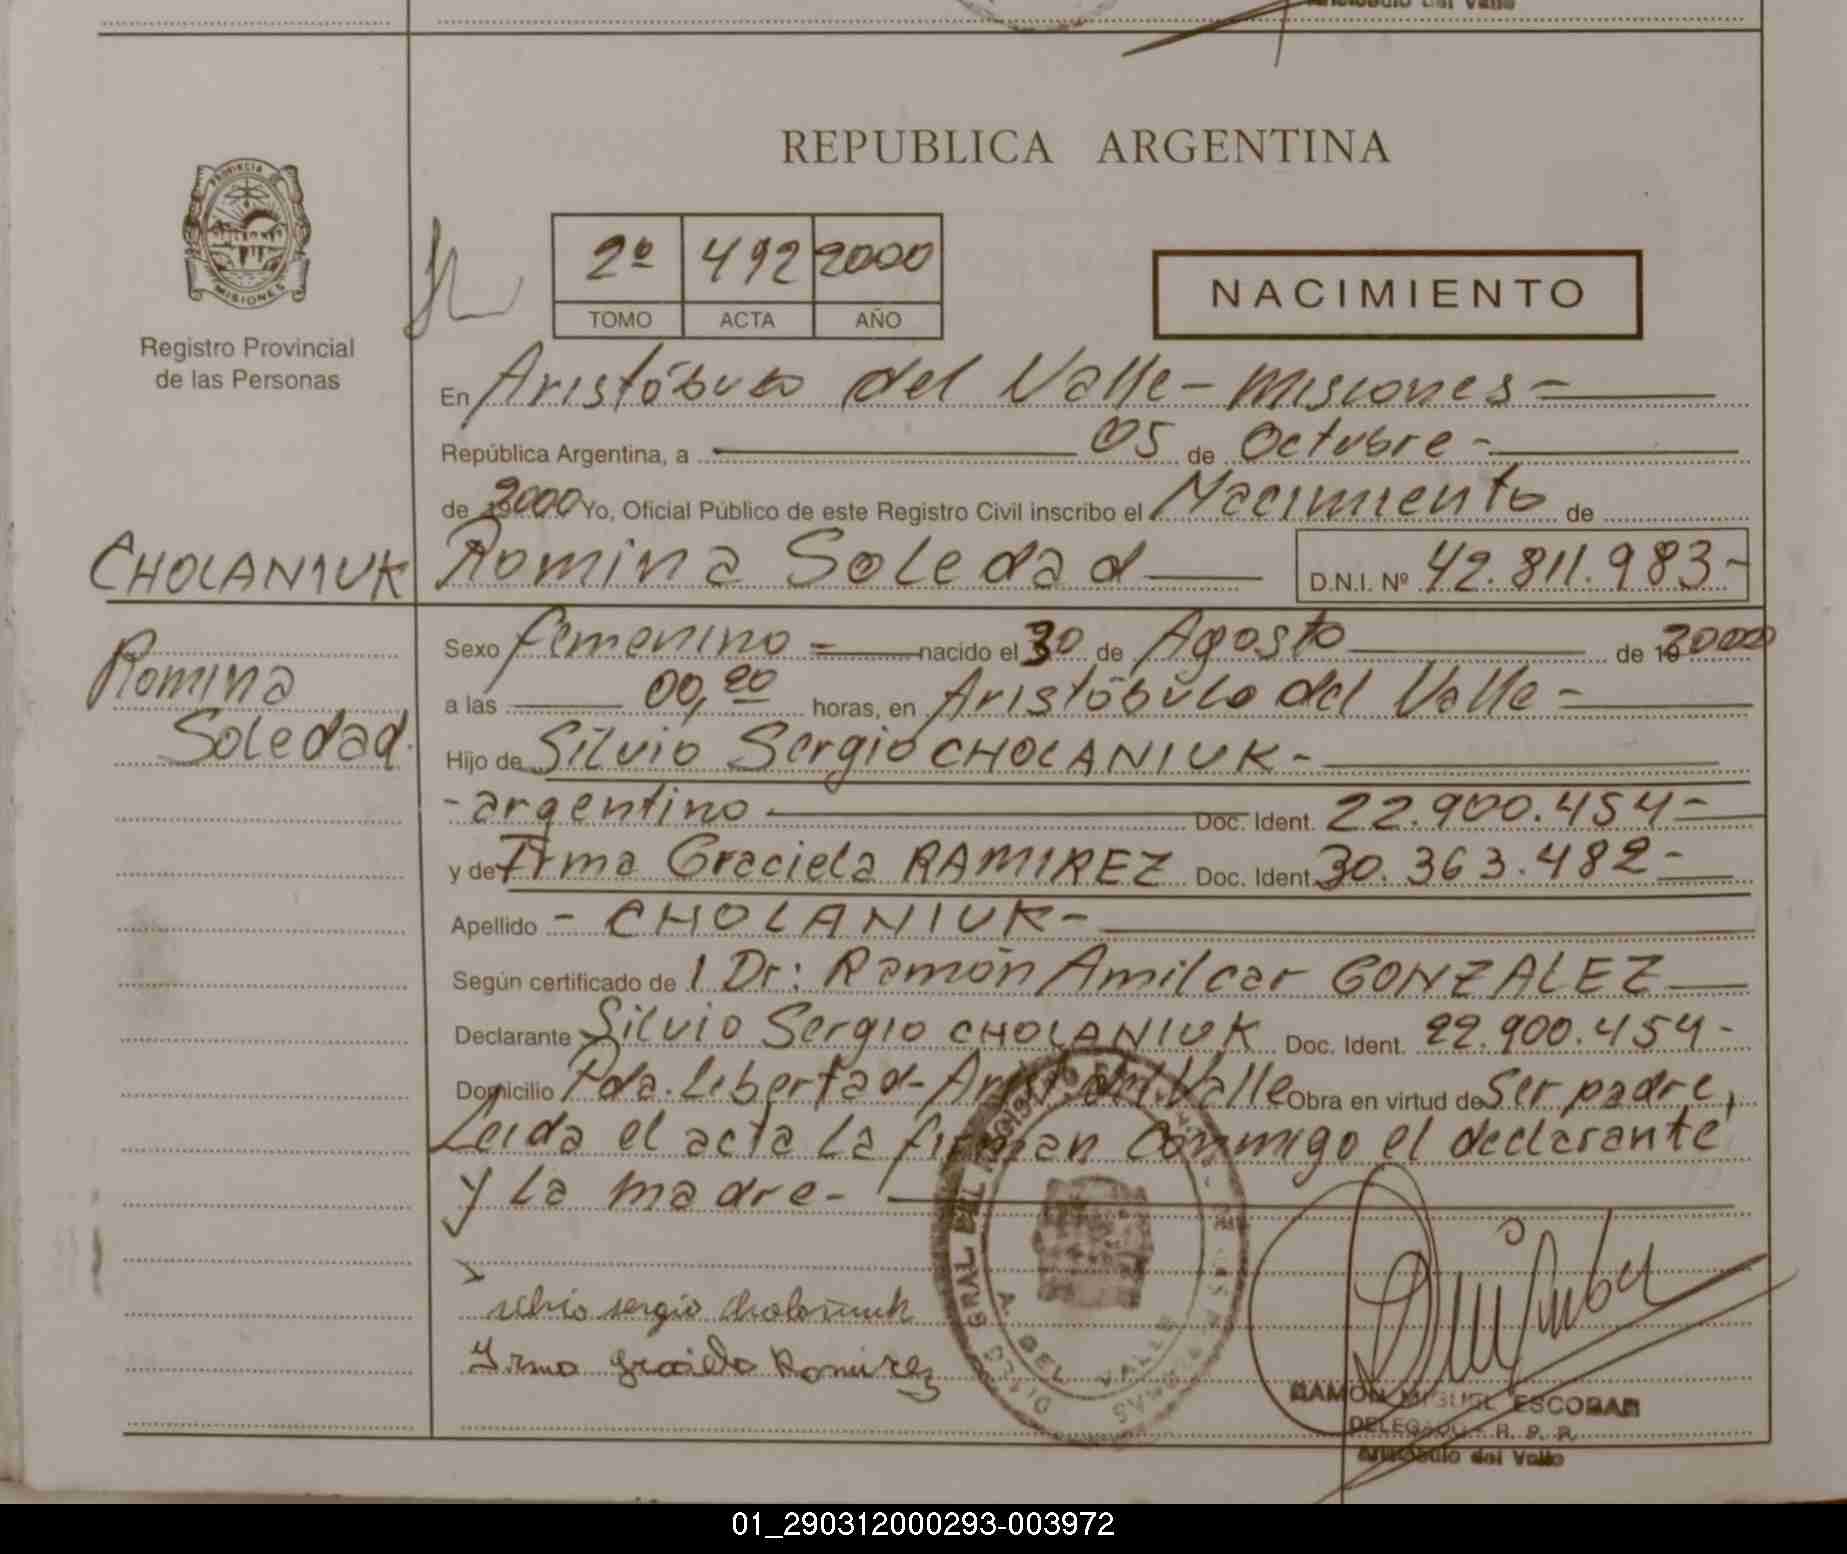 Aristóbulo del Valle
REPUBLICA ARGENTINA
PROVINCIA DE
MISIONES
Registro Provincial
de las Personas
2º 492 2000
TOMO ACTA AÑO
NACIMIENTO
En Aristóbulo del Valle - Misiones -
República Argentina, a 05 de Octubre -
de 2000 Yo, Oficial Público de este Registro Civil inscribo el Nacimiento de
CHOLANIUK Romina Soledad D.N.I. Nº 42.811.983.-
Romina
Soledad.
Sexo femenino - nacido el 30 de Agosto de 2000
a las 00,20 horas, en Aristóbulo del Valle -
Hijo de Silvio Sergio CHOLANIUK -
- argentino Doc. Ident. 22.900.454 -
y de Irma Graciela RAMIREZ Doc. Ident. 30.363.482 -
Apellido - CHOLANIUK -
Según certificado de l Dr: Ramón Amilcar GONZALEZ
Declarante Silvio Sergio CHOLANIUK Doc. Ident. 22.900.454 -
Domicilio Pda. Libertad - Arist. del Valle Obra en virtud de Ser padre,
Leida el acta la firman conmigo el declarante
y la madre -
silvio sergio cholaniuk
Irma graciela Ramirez
RAMON MIGUEL ESCOBAR
DELEGADO - R. P. P.
Aristóbulo del Valle
01_290312000293-003972